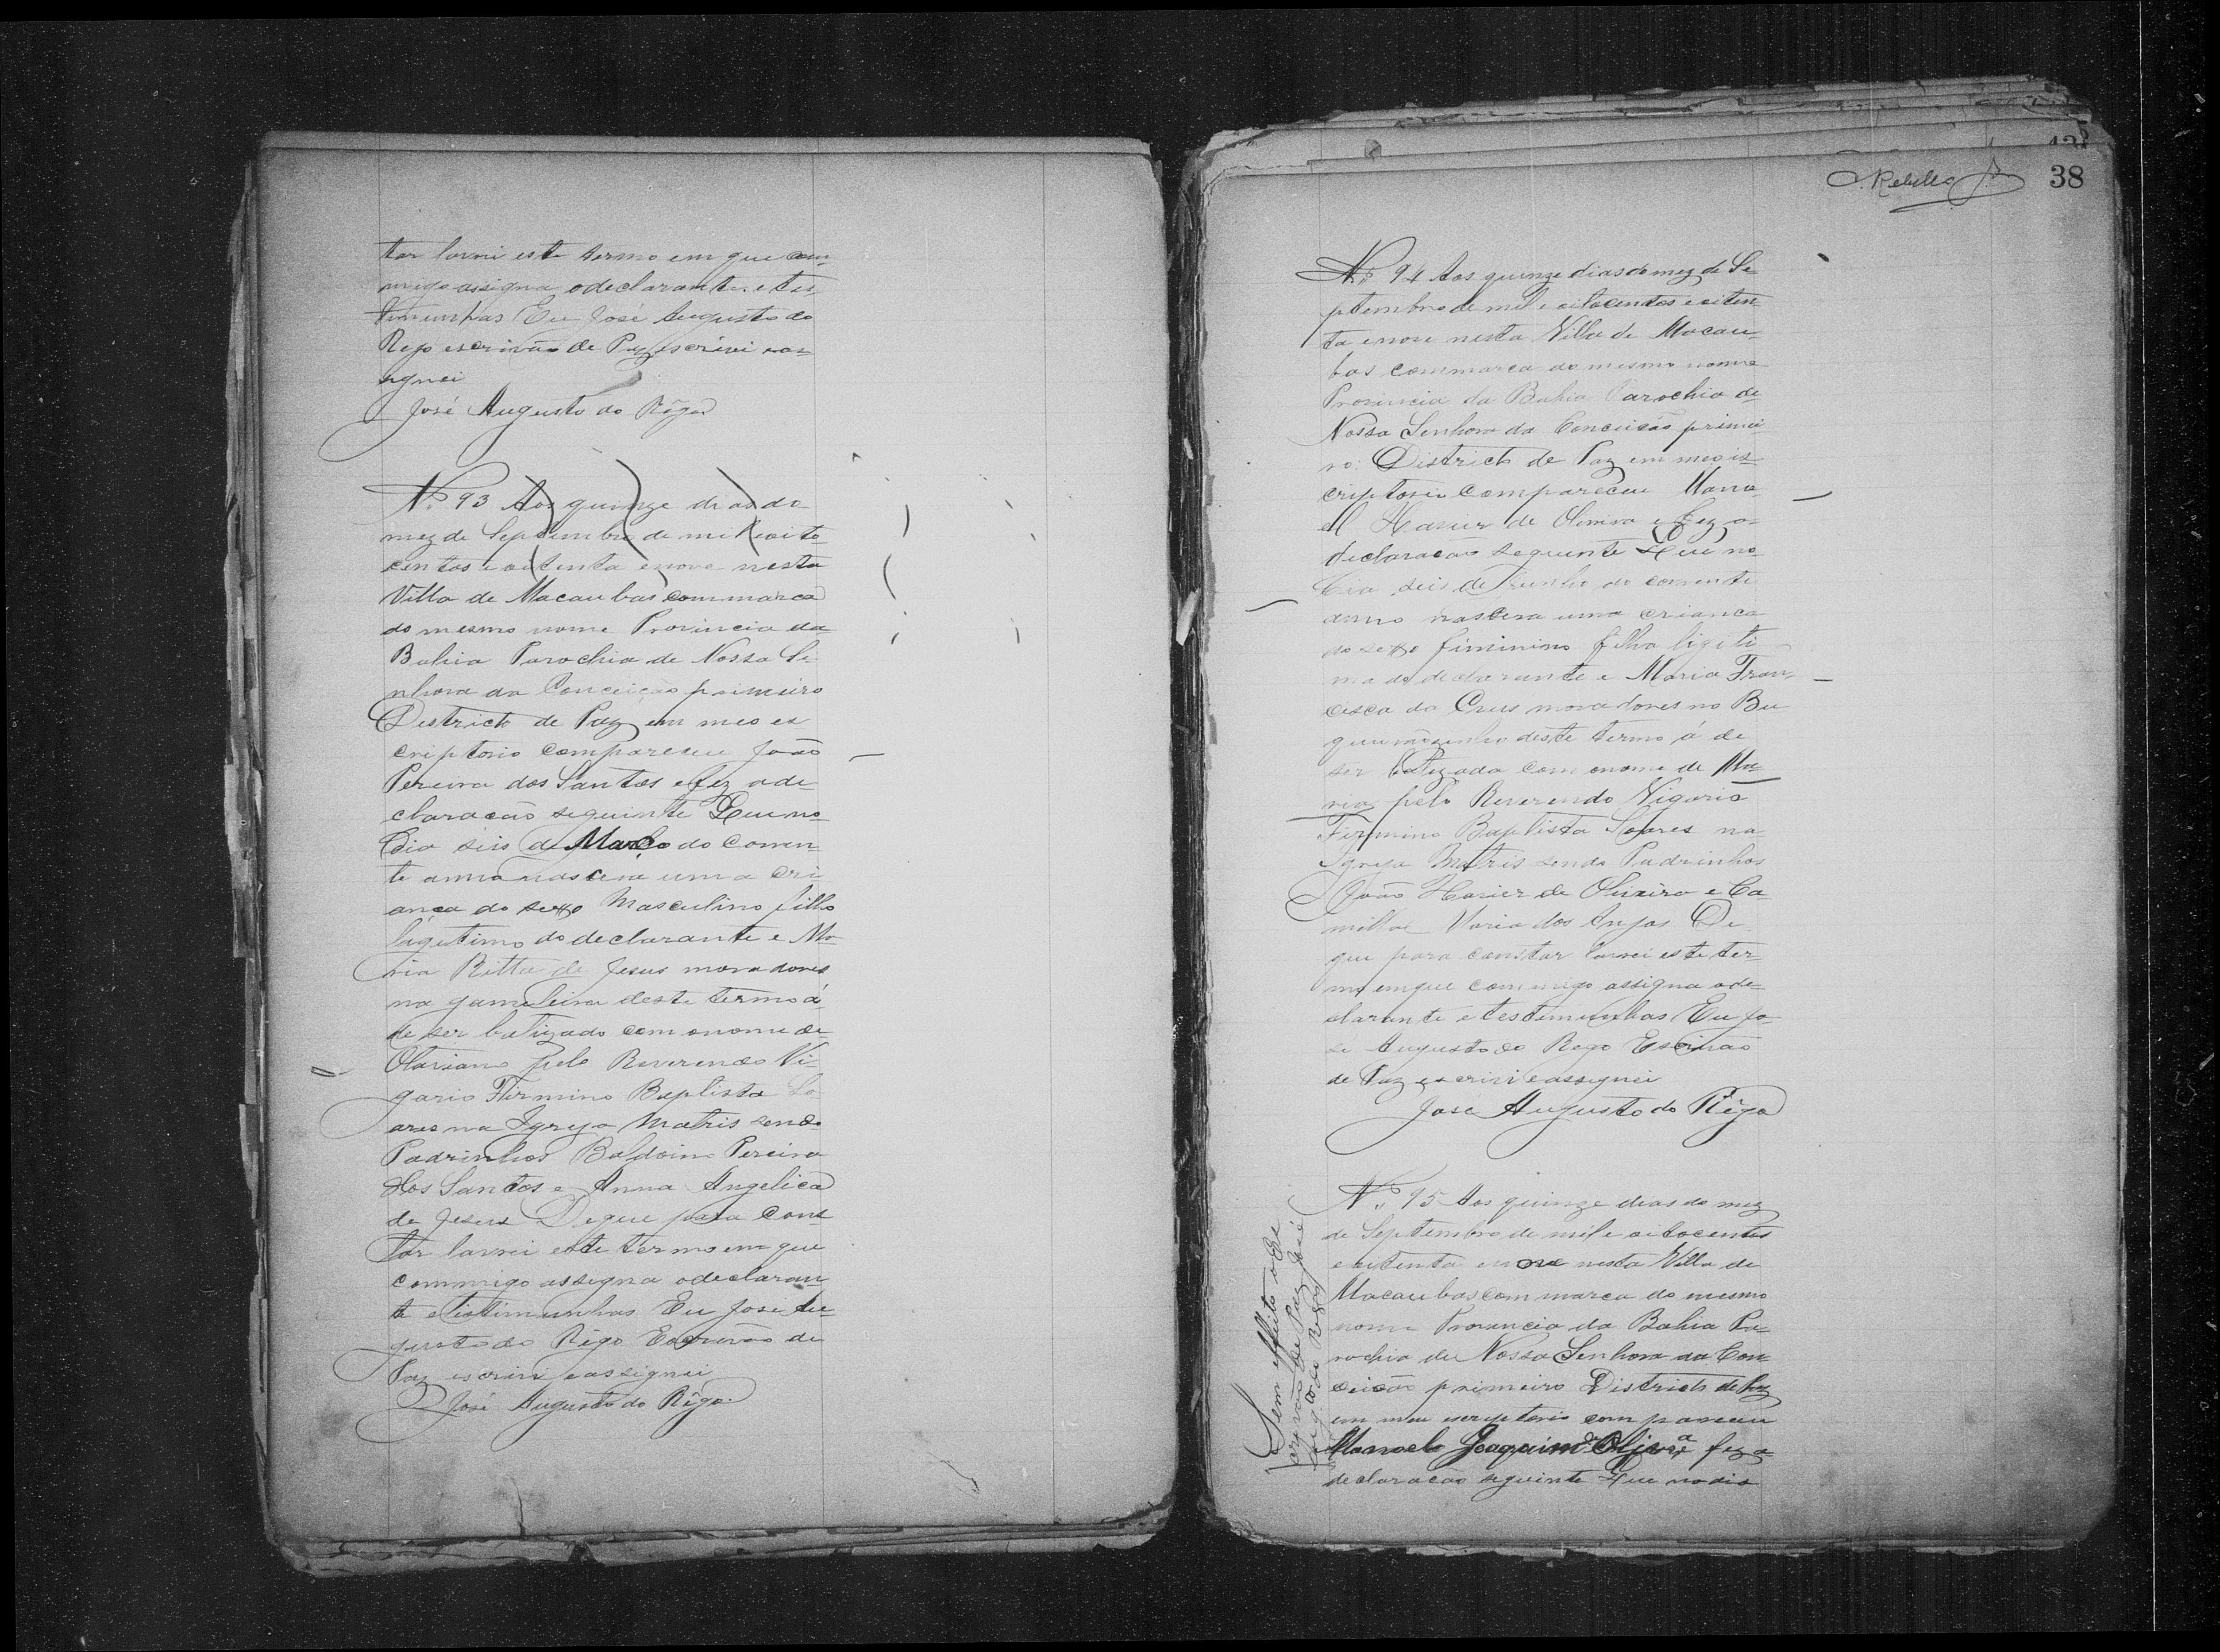 tar lavrei este termo em que com-
migo assigna o declarante e tes-
temunhas Eu José Augusto do
Rego escrivão de Paz escrivi e as-
signei
José Augusto do Rêgo
Nº 93 Aos quinze dias do
mez de Septembro de mil e oito-
centos e oitenta e nove nesta
Villa de Macaubas commarca
do mesmo nome Provincia da
Bahia Parochia de Nossa Se-
nhora da Conceição primeiro
Districto de Paz em meo es
criptorio compareceu João
Pereira dos Santos e fez a de-
claracão seguinte Que no
Dia seis de Março do corren-
te anno nascera uma cri
ança do sexo Masculino filho
ligitimo do declarante e Ma-
ria Ritta de Jesus moradores
na gameleira deste termo á
de ser batizado com o nome de
Otaviano pelo Reverendo Vi-
gario Firmino Baptista So
ares na Igreja Matris sendo
Padrinhos Baldoino Pereira
dos Santos e Anna Angelica
de Jesus De que para cons
tar lavrei este termo em que
commigo assigna o declaran-
te e Testimunhas Eu José Au-
gusto do Rêgo Escrivão de
Paz escrivi e assignei
José Augusto do Rêgo.
Rebello 38
Nº 94 Aos quinze dias do mez de Se-
ptembro de mil e oitocentos e oiten-
ta e nove nesta Villa de Macau-
bas commarca do mesmo nome
Provincia da Bahia Parochia de
Nossa Senhora da Conceicão primei-
ro Districto de Paz em meo es-
criptorio compareceu Mano-
el Xavier de Oliveira e fez a
declaracão seguinte Que no
Dia seis de Junho do corrente
anno nascera uma crianca
do sexo fiminino filha ligiti
ma do declarante e Maria Fran-
cisca da Crus moradores no Bu
deste termo á de
ser batizada com o nome de Ma-
ria pelo Reverendo Vigario
Firmino Baptista Soares na
Igreja Matris sendo Padrinhos
João Xavier de Oliveira e Ca-
milla Maria dos Anjos De
que para constar lavrei este ter-
mo em que commigo assigna o de-
clarante e testemunhas Eu Jo-
sé Augusto do Rego Escrivão
de Paz escrivi e assignei
José Augusto do Rêgo
Nº 95 Aos quinze dias do mez
de Septembro de mil e oitocentos
e oitenta e nove nesta Villa de
Macaubas commarca do mesmo
nome Provincia da Bahia Pa-
rochia de Nossa Senhora da Con-
ceicão primeiro Districto de Paz
em meu escriptorio compareceu
Manoel Joaquim de Olivrª fez a
declaracão seguinte Que no dia
Sem effeito o Es
crivão de Paz José
Augto do Rego